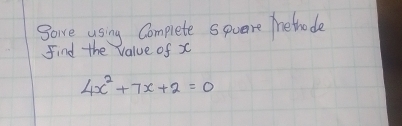 Solve using Complete square methode
Find the value of x
4x² + 7x + 2 = 0